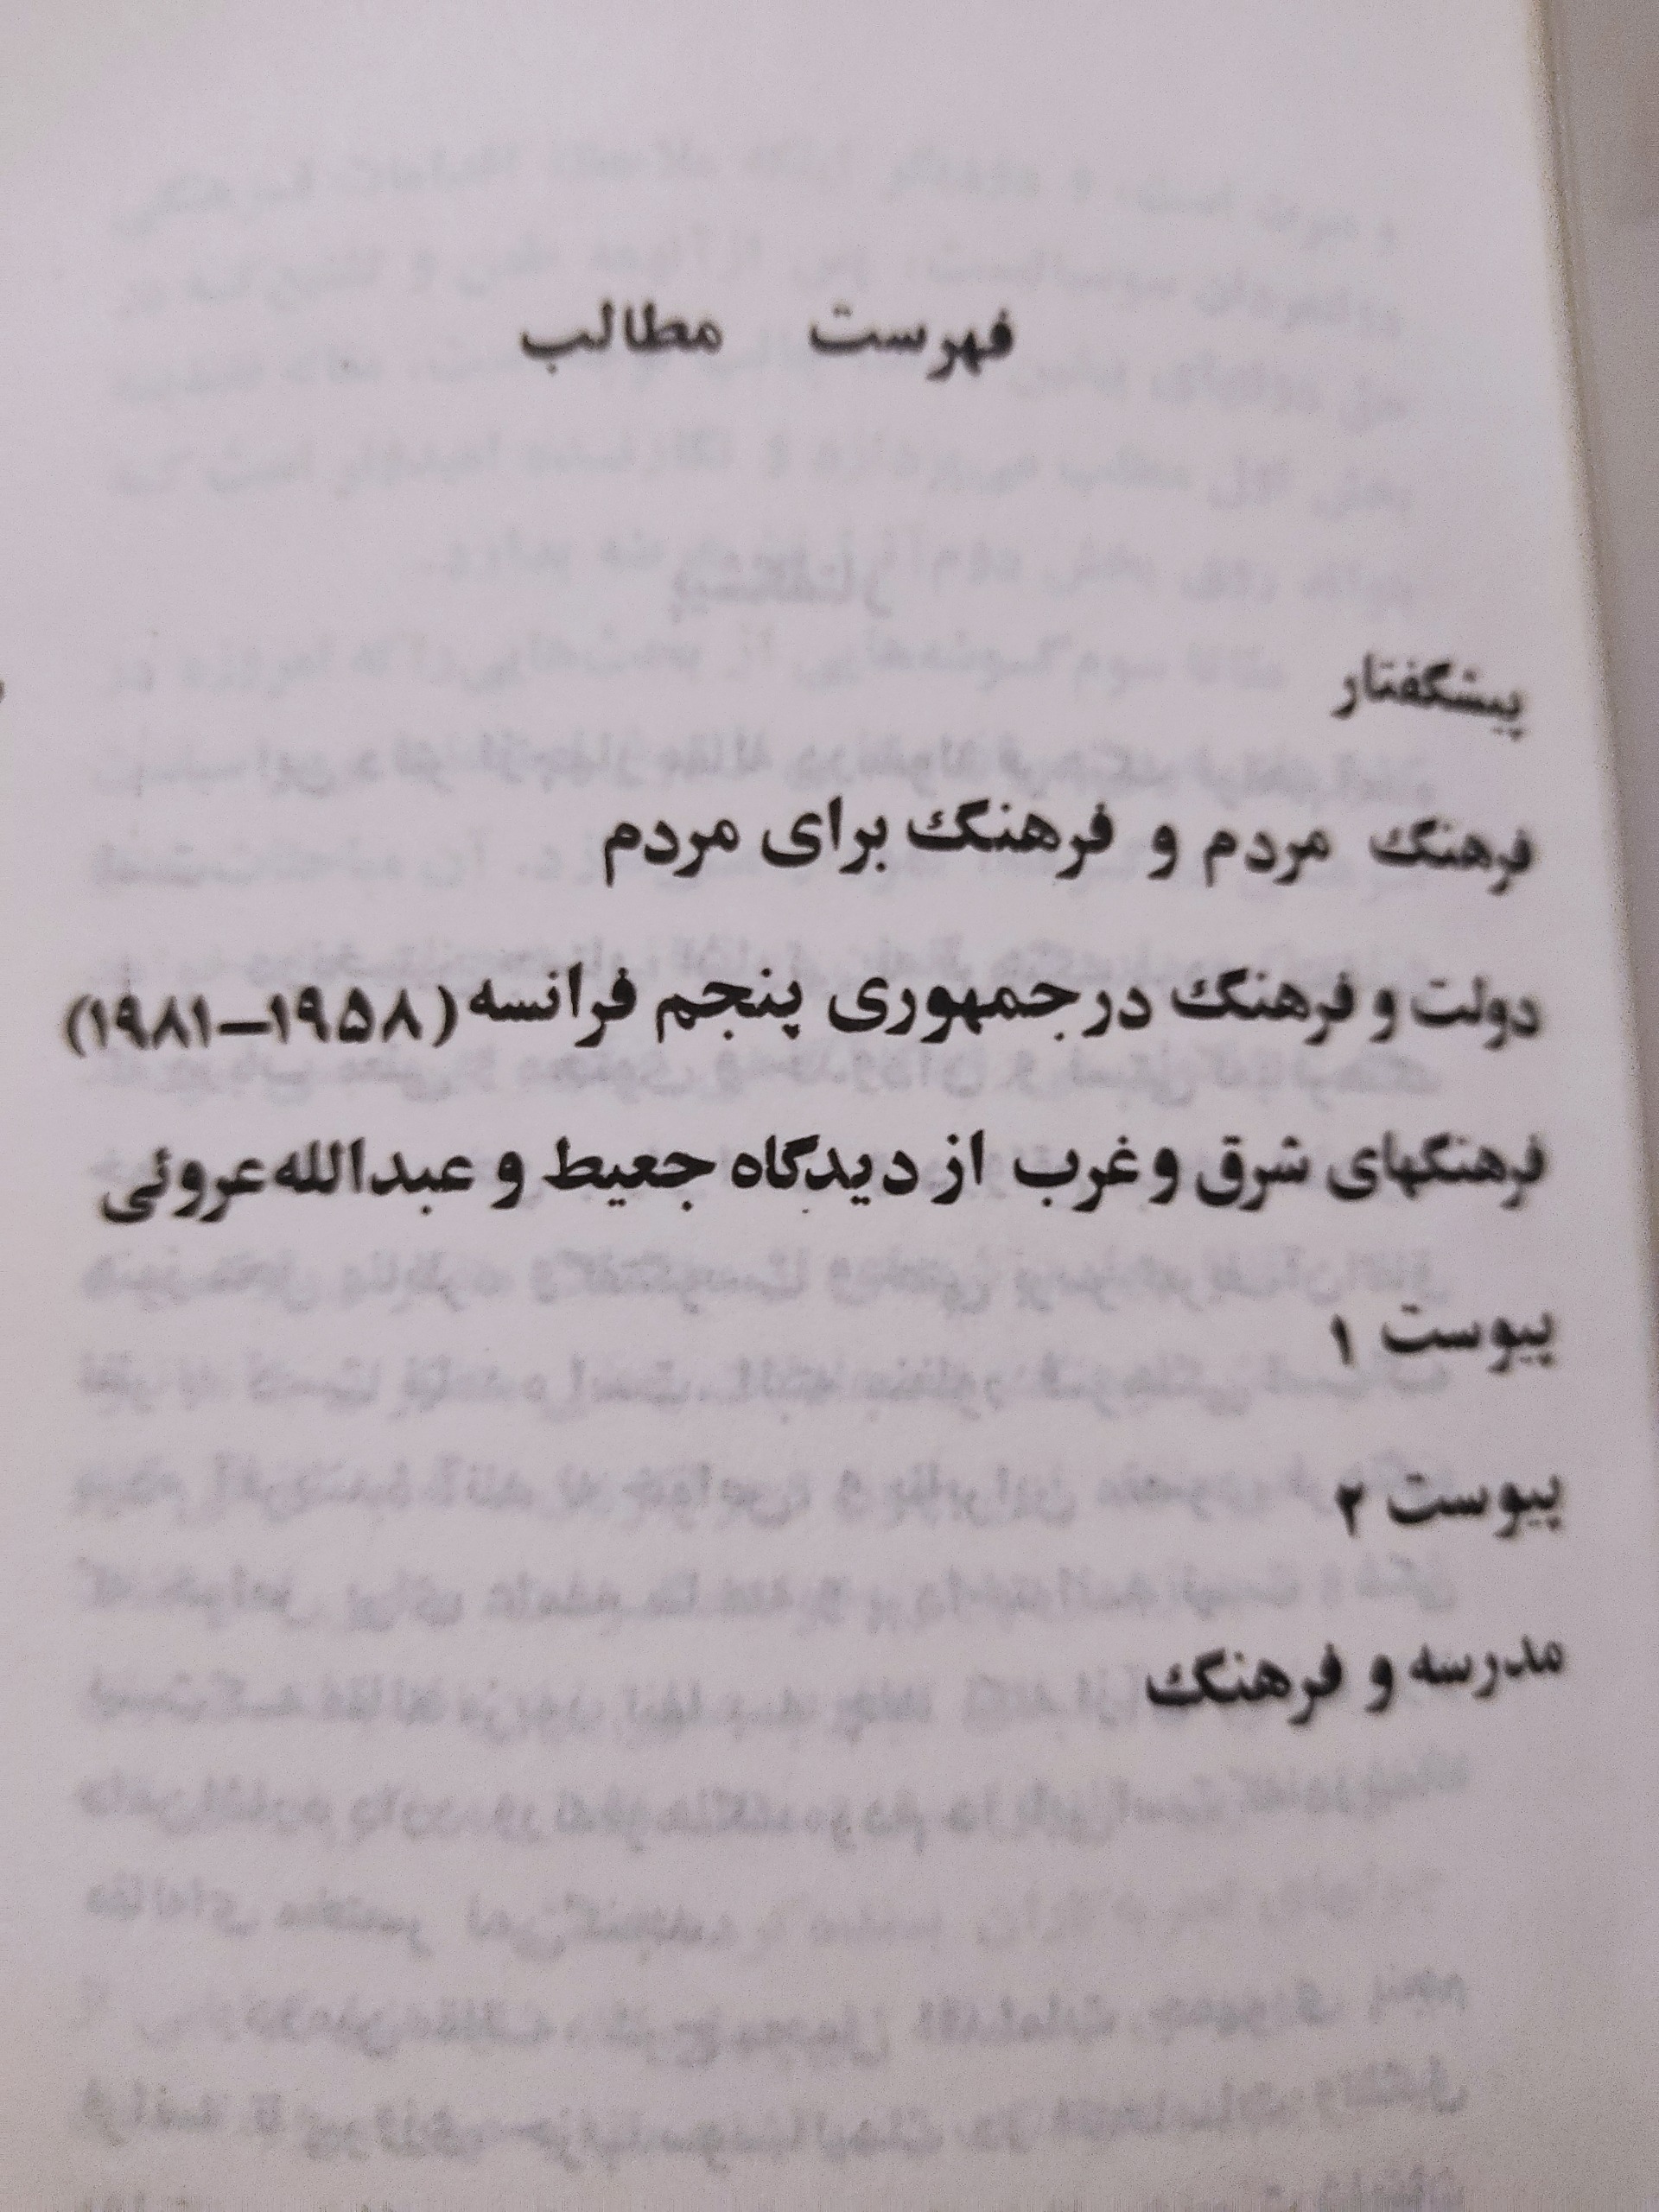 فهرست مطالب
پیشگفتار
فرهنگ مردم و فرهنگ برای مردم
دولت و فرهنگ در جمهوری پنجم فرانسه (۱۹۵۸–۱۹۸۱)
فرهنگهای شرق و غرب از دیدگاه جعیط و عبدالله عروئی
پیوست ۱
پیوست ۲
مدرسه و فرهنگ